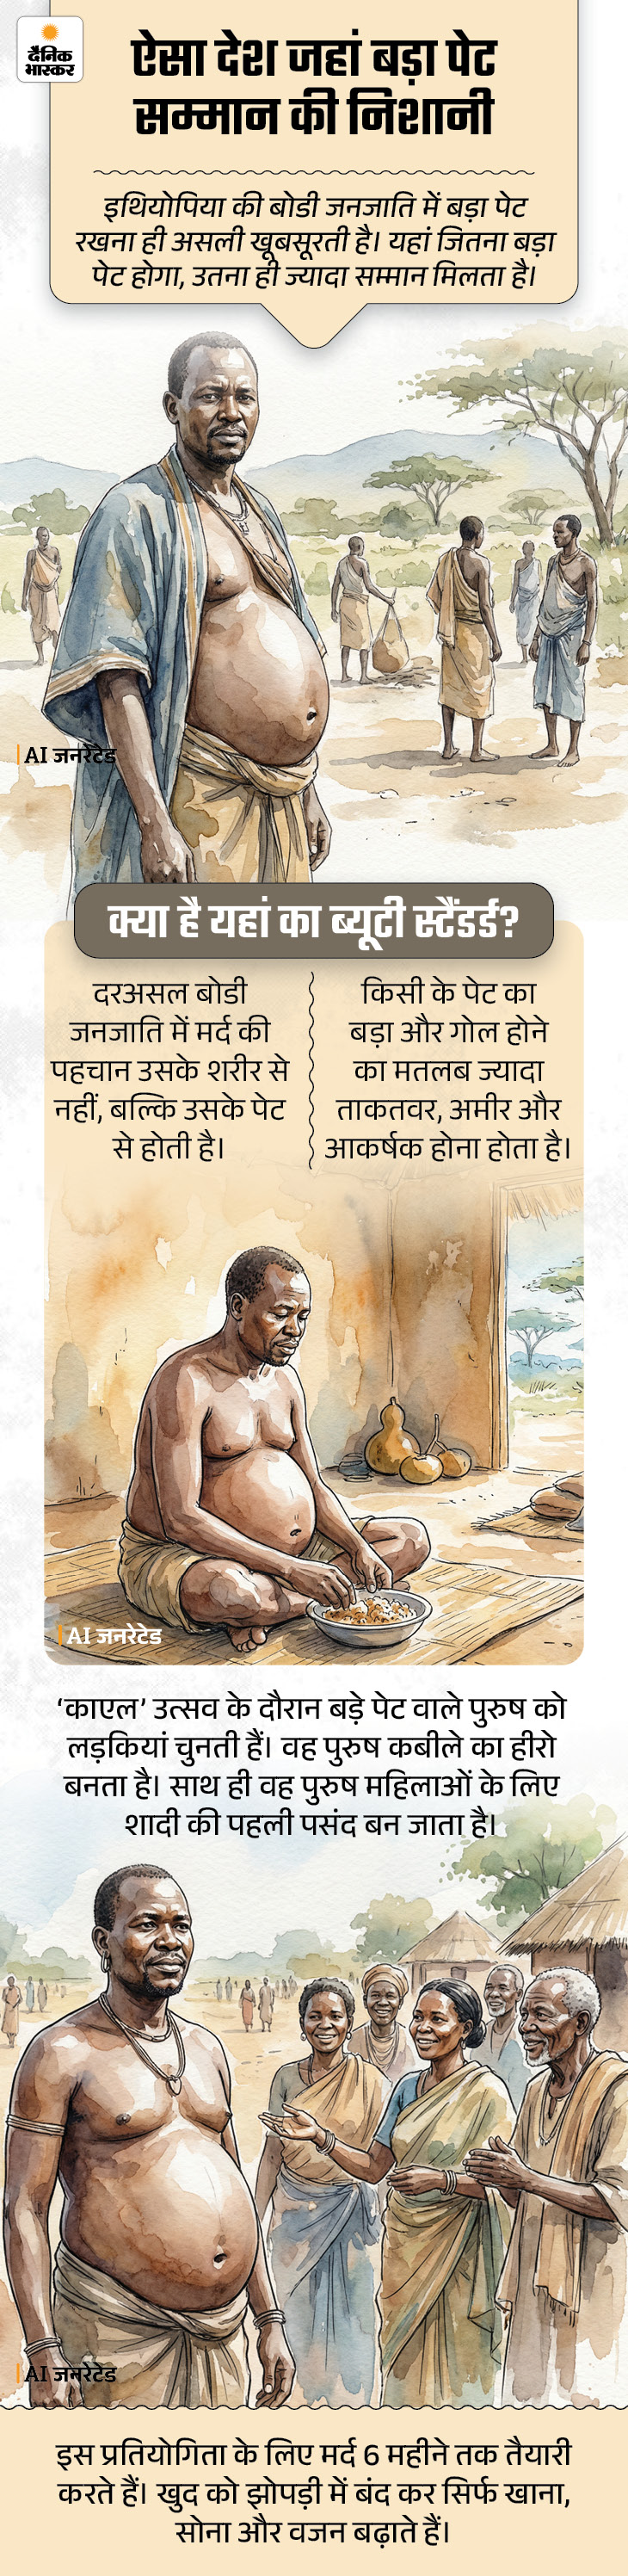 दैनिक
भास्कर
ऐसा देश जहां बड़ा पेट
सम्मान की निशानी
इथियोपिया की बोडी जनजाति में बड़ा पेट
रखना ही असली खूबसूरती है। यहां जितना बड़ा
पेट होगा, उतना ही ज्यादा सम्मान मिलता है।
AI जनरेटेड
क्या है यहां का ब्यूटी स्टैंडर्ड?
दरअसल बोडी
जनजाति में मर्द की
पहचान उसके शरीर से
नहीं, बल्कि उसके पेट
से होती है।
किसी के पेट का
बड़ा और गोल होने
का मतलब ज्यादा
ताकतवर, अमीर और
आकर्षक होना होता है।
AI जनरेटेड
‘काएल’ उत्सव के दौरान बड़े पेट वाले पुरुष को
लड़कियां चुनती हैं। वह पुरुष कबीले का हीरो
बनता है। साथ ही वह पुरुष महिलाओं के लिए
शादी की पहली पसंद बन जाता है।
AI जनरेटेड
इस प्रतियोगिता के लिए मर्द 6 महीने तक तैयारी
करते हैं। खुद को झोपड़ी में बंद कर सिर्फ खाना,
सोना और वजन बढ़ाते हैं।